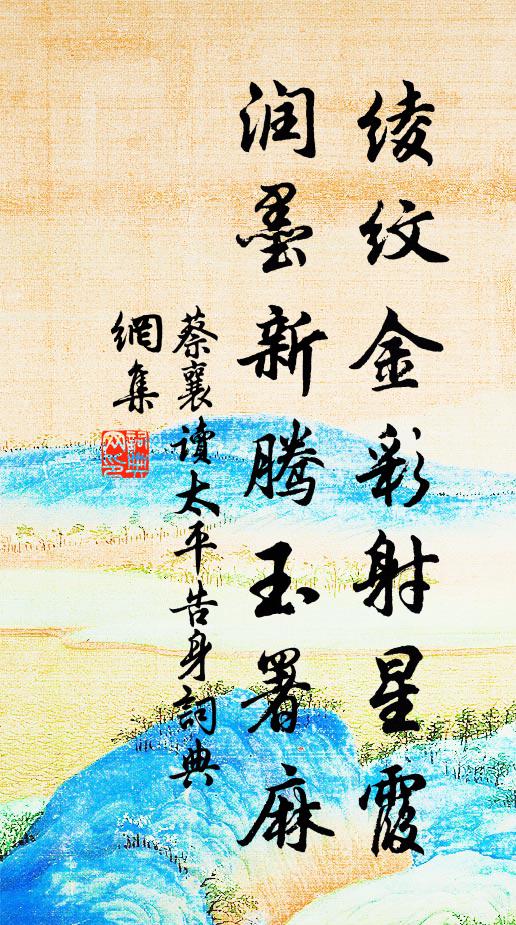 绫纹金彩射星霞
润墨新腾玉署麻
蔡襄读太平告身詞典
網集